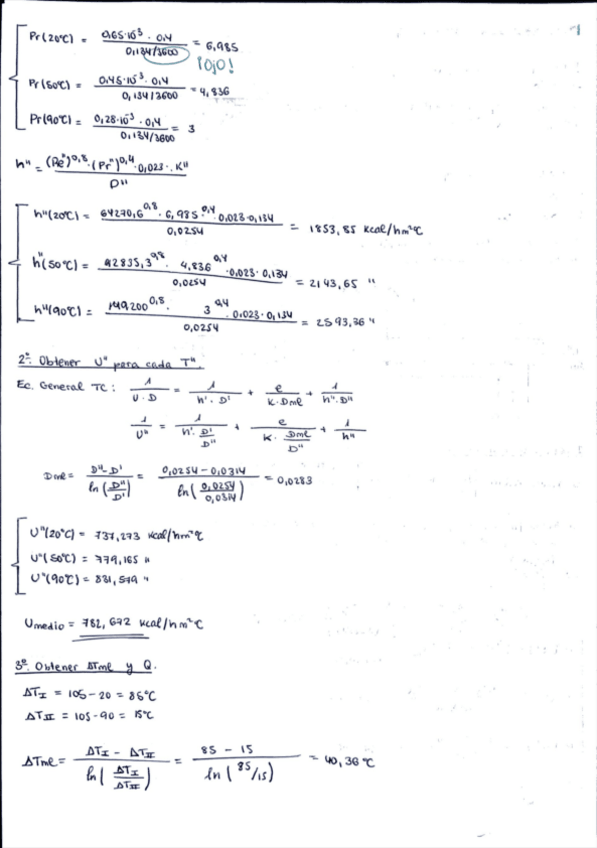 1
Pr(20ºC) = 0,65·10⁻³ · 0,4 / 0,134/3600 = 6,985
¡OJO!
Pr(50ºC) = 0,45·10⁻³ · 0,4 / 0,134/3600 = 4,836
Pr(90ºC) = 0,28·10⁻³ · 0,4 / 0,134/3600 = 3
h" = (Re")^0,8 · (Pr")^0,4 · 0,023 · K" / D"
h"(20ºC) = 64270,6^0,8 · 6,985^0,4 · 0,023 · 0,134 / 0,0254 = 1853,85 Kcal/hm²ºC
h"(50ºC) = 92835,3^0,8 · 4,836^0,4 · 0,023 · 0,134 / 0,0254 = 2143,65 "
h"(90ºC) = 149200^0,8 · 3^0,4 · 0,023 · 0,134 / 0,0254 = 2593,36 "
2º. Obtener U" para cada T".
Ec. General TC: 1 / U · D = 1 / h' · D' + e / K · Dml + 1 / h" · D"
1 / U" = 1 / h' · D'/D" + e / K · Dml/D" + 1 / h"
Dml = D" - D' / ln(D"/D') = 0,0254 - 0,0314 / ln(0,0254/0,0314) = 0,0283
U"(20ºC) = 737,273 Kcal/hm²ºC
U"(50ºC) = 779,165 "
U"(90ºC) = 831,579 "
Umedio = 782,672 Kcal/hm²ºC
3º. Obtener ΔTml y Q.
ΔT_I = 105 - 20 = 85ºC
ΔT_II = 105 - 90 = 15ºC
ΔTml = ΔT_I - ΔT_II / ln(ΔT_I/ΔT_II) = 85 - 15 / ln(85/15) = 40,36 ºC